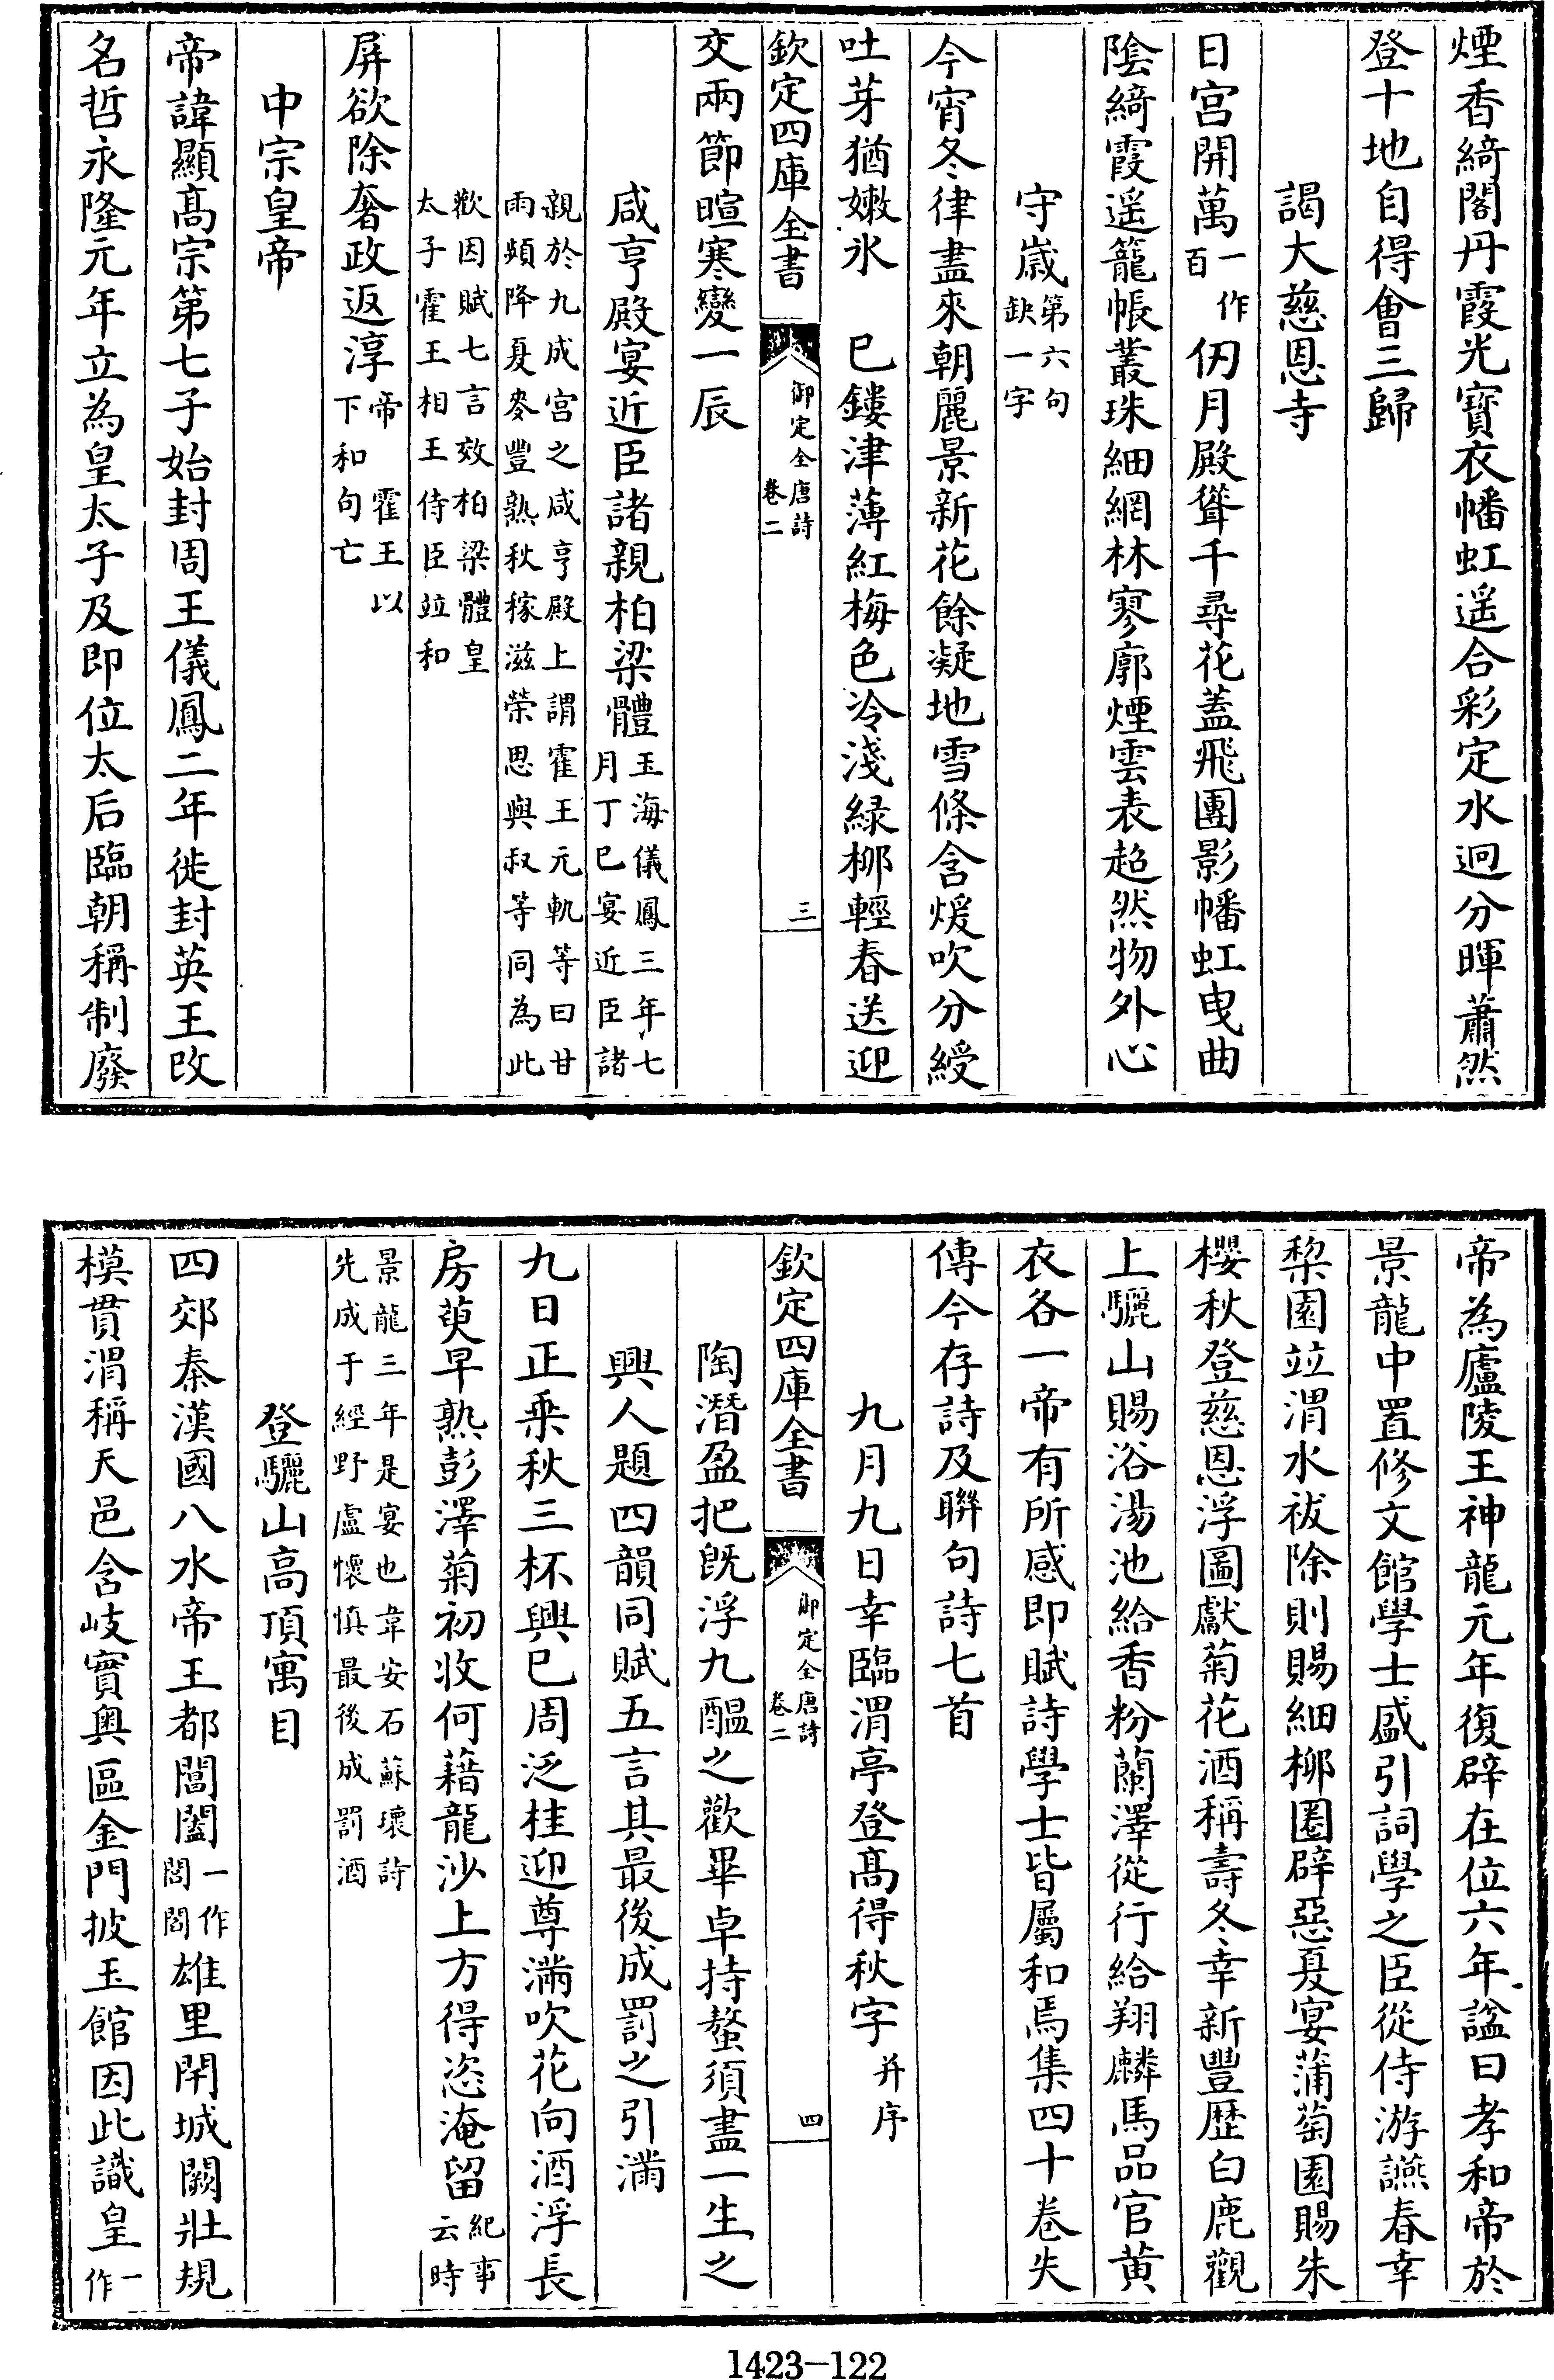 煙香綺閣丹霞光寶衣幡虹遥合彩定水迥分暉蕭然
登十地自得會三歸
謁大慈恩寺
日宫開萬一作百仞月殿聳千尋花蓋飛團影幡虹曳曲
陰綺霞遥籠帳叢珠細網林寥廓煙雲表超然物外心
守歳第六句缺一字
今宵冬律盡來朝麗景新花餘凝地雪條含煖吹分綬
吐芽猶嫩氷　已鏤津薄紅梅色冷淺緑栁輕春送迎
欽定四庫全書
御定全唐詩
卷二
三
交兩節暄寒變一辰
咸亨殿宴近臣諸親柏梁體玉海儀鳳三年七月丁巳宴近臣諸
親於九成宫之咸亨殿上謂霍王元軌等曰甘雨頻降夏麥豐熟秋稼滋榮思與叔等同為此
歡因賦七言效柏梁體皇太子霍王相王侍臣竝和
屏欲除奢政返淳帝　霍王以下和句亡
中宗皇帝
帝諱顯髙宗第七子始封周王儀鳳二年徙封英王改
名哲永隆元年立為皇太子及即位太后臨朝稱制廢
帝為廬陵王神龍元年復辟在位六年諡曰孝和帝於
景龍中置修文館學士盛引詞學之臣從侍游讌春幸
棃園竝渭水祓除則賜細柳圈辟惡夏宴蒲萄園賜朱
櫻秋登慈恩浮圖獻菊花酒稱壽冬幸新豐歴白鹿觀
上驪山賜浴湯池給香粉蘭澤從行給翔麟馬品官黄
衣各一帝有所感即賦詩學士皆屬和焉集四十卷失
傳今存詩及聨句詩七首
九月九日幸臨渭亭登髙得秋字并序
欽定四庫全書
御定全唐詩
卷二
四
陶潛盈把既浮九醖之歡畢卓持螯須盡一生之
興人題四韻同賦五言其最後成罰之引滿
九日正乗秋三杯興已周泛桂迎尊滿吹花向酒浮長
房萸早熟彭澤菊初收何藉龍沙上方得恣淹留紀事云時
景龍三年是宴也韋安石蘇瓌詩先成于經野盧懷慎最後成罰酒
登驪山高頂寓目
四郊秦漢國八水帝王都閶闔一作閭閻雄里閈城闕壯規
模貫渭稱天邑含岐實奥區金門披玉館因此識皇一作
1423-122